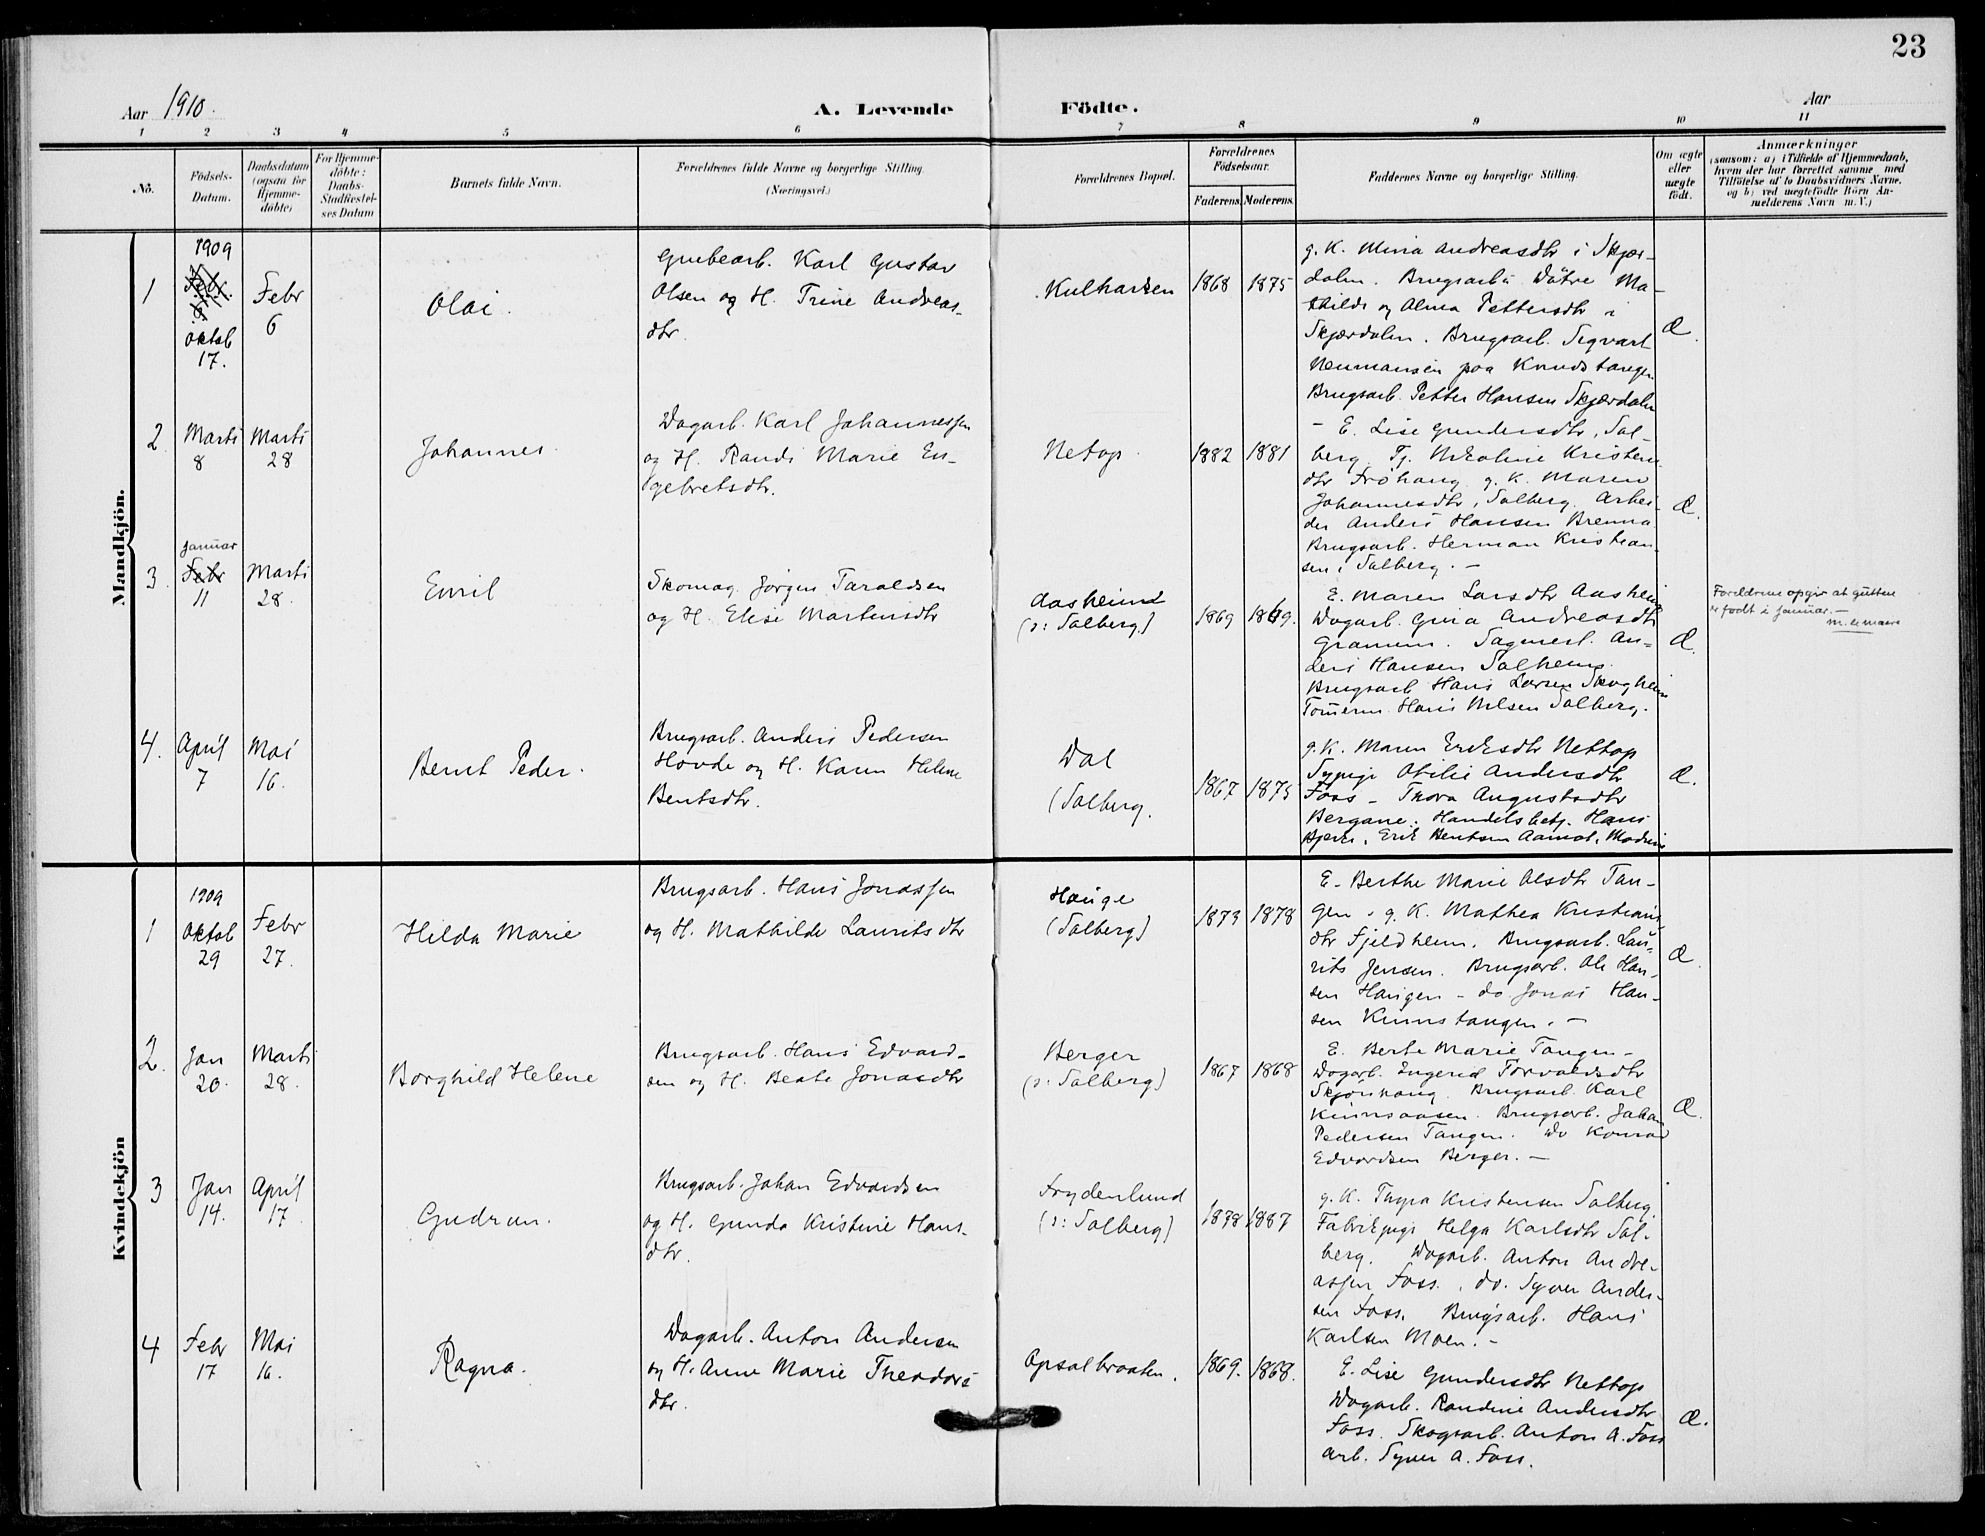 23
Aar 1910.
A. Levende Födte.
Aar
1 2 3 4 5 6 7 8 9 10 11
No.
Födsels-
Datum.
Daabsdatum
(ogsaa for
Hjemme-
döbte)
For Hjemme-
döbte:
Daabs-
Stadfestel-
ses Datum
Barnets fulde Navn.
Forældrenes fulde Navne og borgerlige Stilling
(Næringsvei.)
Forældrenes Bopæl.
Forældrenes
Födselsaar.
Faderens
Moderens.
Faddernes Navne og borgerlige Stilling.
Om ægte
eller
uægte
födt.
Anmærkninger
(saasom: a) i Tilfælde af Hjemmedaab,
hvem der har forrettet samme med
Tilföielse af to Daabsvidners Navne,
og b) ved uegtefödte Börn An-
melderens Navn m. V.)
Mandkjön.
1
1909
Febr
oktob
17.
Febr
6
Olai.
Grubearb. Karl Gustav
Olsen og H. Trine Andreas-
dtr.
1868
1875
g. K. Mina Andreasdtr i Skjær-
dalen. Brugsarb. Døtre Ma-
thilde og Alma Pettersdtr i
Skjærdalen. Brugsarb. Sigvart
Neumansen paa Knudstangen
Brugsarb. Petter Hansen Skjærdalen
Æ.
2
Marts
8
Marts
28
Johannes
Dagarb. Karl Johannessen
og H. Randi Marie En-
gebretsdtr.
Netop.
1882
1881
– E. Lise Gundersdtr, Sol-
berg. Tj. Nikoline Kristens
dtr Frøhaug g. K. Maren
Johannesdtr, Solberg. Arbei-
der Anders Hansen Brenna
Brugsarb. Herman Kristian-
sen, Solberg. –
Æ.
3.
Januar
Febr
11
Marts
28.
Emil
Skomag. Jørgen Taraldsen
og H. Elise Martinsdtr
Aasheim
(ɔ: Solberg)
1869
1869.
E. Maren Larsdtr Aasheim
Dagarb. Gina Andreasdtr
Gramum. Sagmest. An-
ders Hansen Solheim.
Brugsarb Hans Larsen Skogheim
Tømerm. Hans Nilsen Solberg.
Æ.
Foreldrene opgir at gutten
er født i januar. –
4.
April
7
Mai
16.
Bernt Peder.
Brugsarb. Anders Pedersen
Hovde og H. Karen Helene
Bentsdtr.
Dal
(Solberg.
1867
1875
g. K. Maren Eriksdtr Nettop
Sypige Otilie Andersdtr
Foss – Thora Augustsdtr
Bergane. Handelsbetj. Hans
Bjerke, Erik Bentsen Aamot, Modum
Æ.
Kvindekjön
1
1909
oktob
29
Febr
27.
Hilda Marie
Brugsarb. Hans Jonassen
og H. Mathilde Lauritsdtr
Hauge
(Solberg)
1873
1878
E. Berthe Marie Olsdtr Tan-
gen, g. K. Mathea Kristians
dtr Fjeldheim. Brugsarb. Lau-
rits Jensen. Brugsarb. Ole Han-
sen Haugen – do. Jonas Han-
sen Kinnstangen. –
Æ.
2.
Jan
20.
Marts
28.
Borghild Helene
Brugsarb. Hans Edvard-
sen og H. Beate Jonasdtr
Berger
(ɔ: Solberg)
1867
1868
E. Berte Marie Tangen –
Dagarb. Engerid Torvaldsdtr
Skjønhaug. Brugsarb. Karl
Kinnsaasen. Brugsarb. Johan
Pedersen Tangen. Do Konrad
Edvardsen Berger. –
Æ.
3
Jan
14.
April
17.
Gudrun.
Brugsarb. Johan Edvardsen
og H. Gunda Kristine Hans-
dtr.
Frydenlund
(ɔ: Solberg)
1878
1887
g. K. Thyra Kristensen Solberg.
Fabrikpige Helga Karlsdtr Sol-
berg. Dagarb. Anton Andre-
assen Foss. do. Syver Ander-
sen Foss. Brugsarb. Hans
Karlsen Moen. –
4
Febr
17
Mai
16.
Ragna.
Dagarb. Anton Andersen
og H. Anne Marie Theodors
dtr.
Opsalbraaten.
1869.
1868.
E. Lise Gundersdtr Nettop
Dagarb. Randine Andersdtr
Foss. Skogsarb. Anton A. Foss
arb. Syver A. Foss.
Æ.